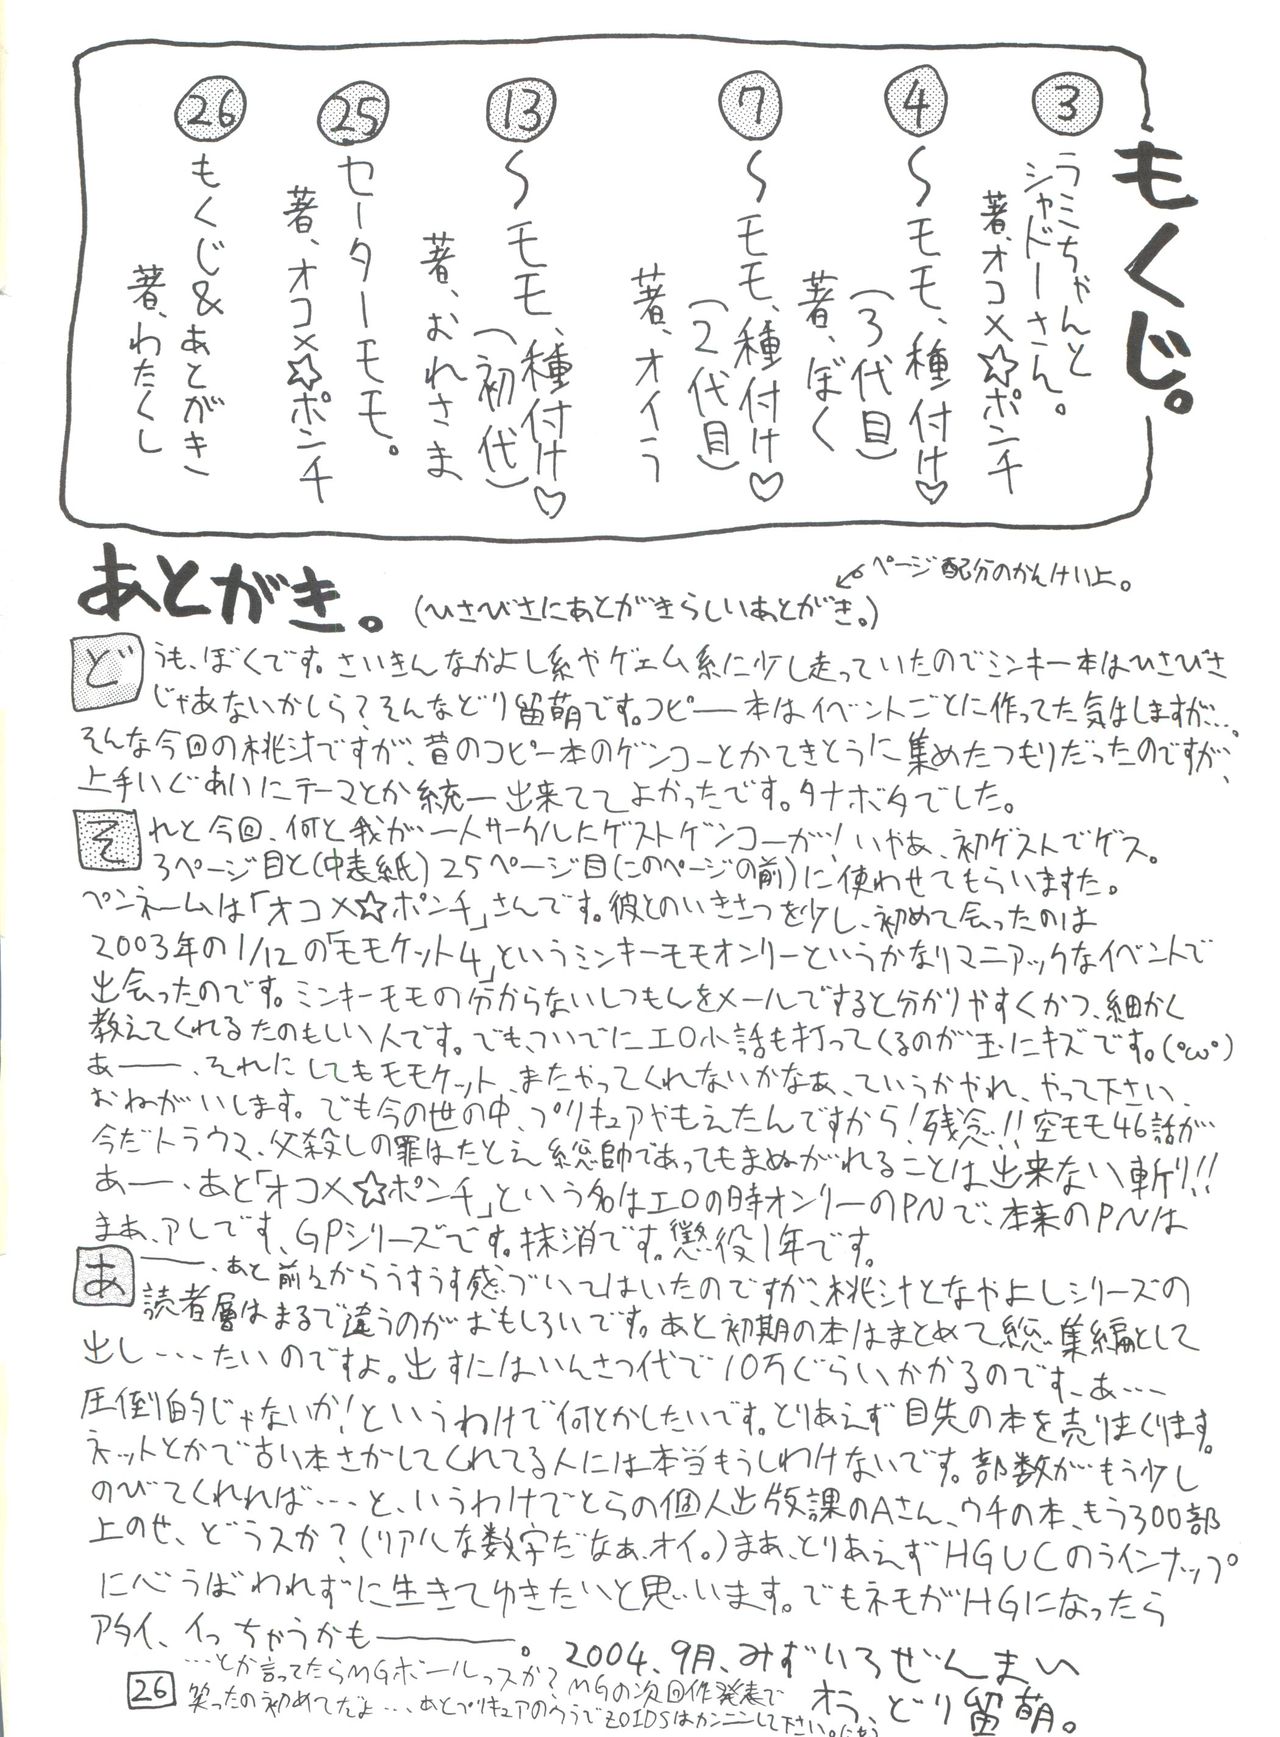 もくじ。
3
ラミちゃんと
シャドーさん。
著、オコメ☆ポンチ
4
～モモ、種付け♡
(3代目)
著、ぼく
7
～モモ、種付け♡
(2代目)
著、オイラ
13
～モモ、種付け♡
(初代)
著、おれさま
25
セーターモモ。
著、オコメ☆ポンチ
26
もくじ&あとがき
著、わたくし
ページ配分のかんけい上。
あとがき。(ひさびさにあとがきらしいあとがき。)
どうも、ぼくです。さいきんなかよし系やゲェム系に少し走っていたのでミンキー本はひさびさ
じゃあないかしら?そんなどり留萌です。コピー本はイベントごとに作ってた気はしますが…。
そんな今回の桃汁ですが、昔のコピー本のゲンコーとかてきとうに集めたつもりだったのですが、
上手いぐあいにテーマとか統一出来ててよかったです。タナボタでした。
それと今回、何と我が一人サークルにゲストゲンコーが!いやあ、初ゲストでゲス。
3ページ目と(中表紙)25ページ目(このページの前)に使わせてもらいますた。
ペンネームは「オコメ☆ポンチ」さんです。彼とのいきさつを少し、初めて会ったのは
2003年の1/12の「モモケット4」というミンキーモモオンリーというかなりマニアックなイベントで
出会ったのです。ミンキーモモの分からないしつもんをメールですると分かりやすくかつ、細かく
教えてくれるたのもしい人です。でも、ついでにエロ小話も打ってくるのが玉にキズです。(°ω°)
あー――、それにしてもモモケット、またやってくれないかなあ、ていうかやれ、やって下さい、
おねがいします。でも今の世の中、プリキュアやもえたんですから!残念!!空モモ46話が…
今だトラウマ、父殺しの罪はたとえ総帥であってもまぬがれることは出来ない斬り!!
あー、あと「オコメ☆ポンチ」という名はエロの時オンリーのPNで、本来のPNは
まあ、アレです、GPシリーズです。抹消です。懲役1年です。
あー――、あと前々からうすうす感づいてはいたのですが、桃汁となやよしシリーズの
読者層はまるで違うのがおもしろいです。あと初期の本はまとめて総集編として
出し・・・たいのですよ。出すにはいんさつ代で10万ぐらいかかるのです、あ・・・
圧倒的じゃないか!というわけで何とかしたいです。とりあえず目先の本を売りまくります。
ネットとかで古い本さがしてくれてる人には本当もうしわけないです。部数がもう少し
のびてくれれば・・・と、いうわけでとらの個人出版課のAさん、ウチの本、もう300部
上のせ、どうスか?(リアルな数字だなぁ、オイ。)まあ、とりあえずHGUCのラインナップ
に心うばわれずに生きてゆきたいと思います。でもネモがHGになったら
アタイ、イっちゃうかも――――。2004、9月、みずいろぜんまい
オラ、どり留萌。
…とか言ってたらMGボールっスか?MGの次回作発表で
笑ったの初めてだよ…、あとプリキュアのウラでZOIDSはカンニンして下さい。
26